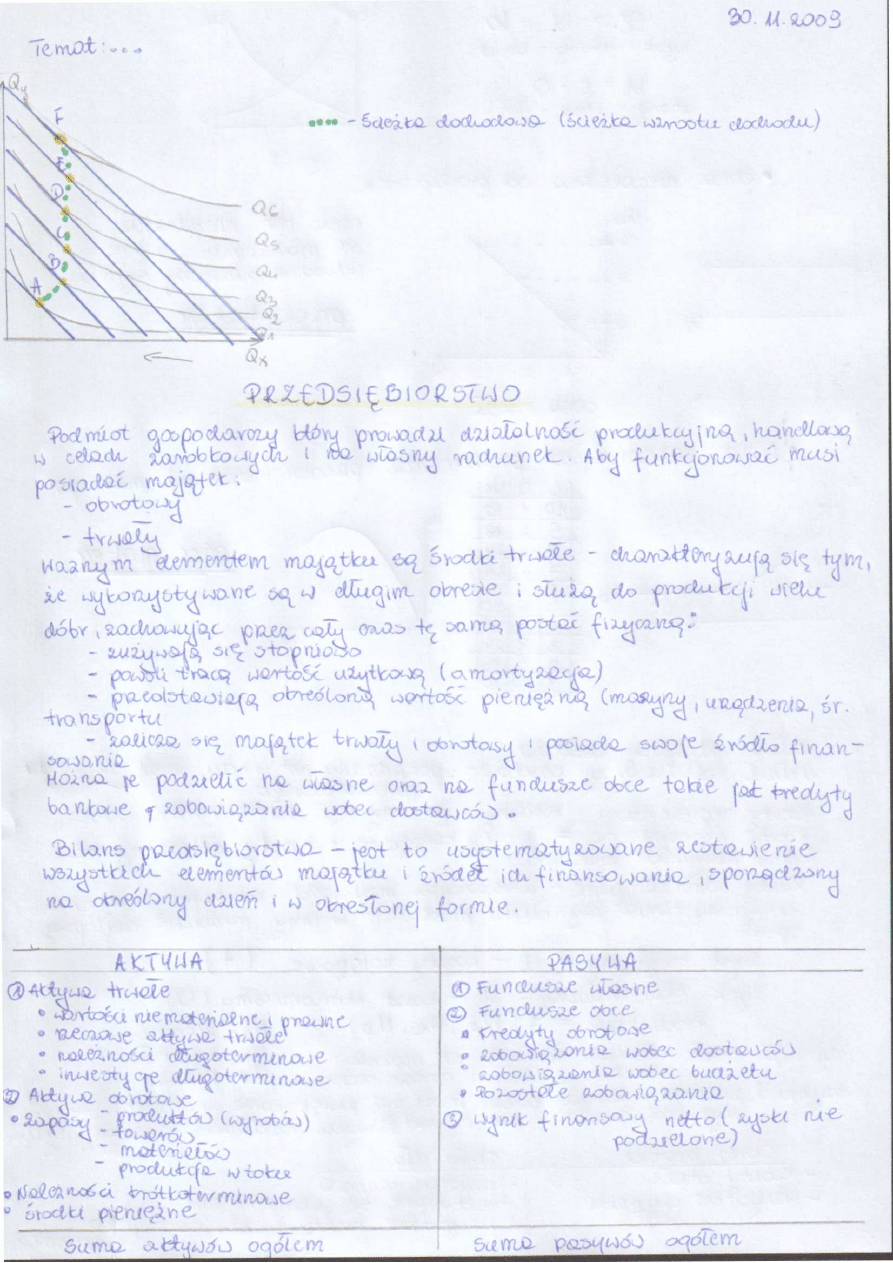 30.11.2009
Temat:...
Qy
F
- Ścieżka dochodowa (ścieżka wzrostu dochodu)
E
D
Q6
C
Q5
B
Q4
A
Q3
Q2
Q1
Qx
PRZEDSIĘBIORSTWO
Podmiot gospodarczy który prowadzi działalność produkcyjną, handlową
w celach zarobkowych i na własny rachunek. Aby funkcjonować musi
posiadać majątek:
- obrotowy
- trwały
Ważnym elementem majątku są środki trwałe - charakteryzują się tym,
że wykorzystywane są w długim okresie i służą do produkcji wielu
dóbr, zachowując przez cały czas tę samą postać fizyczną:
- zużywają się stopniowo
- powoli tracą wartość użytkową (amortyzacja)
- przedstawiają określoną wartość pieniężną (maszyny, urządzenia, śr.
transportu
- zalicza się majątek trwały i obrotowy i posiada swoje źródło finan-
sowania
Można je podzielić na własne oraz na fundusze obce takie jak kredyty
bankowe, zobowiązania wobec dostawców.
Bilans przedsiębiorstwa - jest to usystematyzowane zestawienie
wszystkich elementów majątku i źródeł ich finansowania, sporządzony
na określony dzień i w określonej formie.
AKTYWA
① Aktywa trwałe
• wartości niematerialne i prawne
• rzeczowe aktywa trwałe
• należności długoterminowe
• inwestycje długoterminowe
② Aktywa obrotowe
• zapasy - produktów (wyrobów)
- towarów
materiałów
- produkcja w toku
• Należności krótkoterminowe
• środki pieniężne
Suma aktywów ogółem
PASYWA
① Fundusze własne
② Fundusze obce
• Kredyty obrotowe
• zobowiązania wobec dostawców
• zobowiązania wobec budżetu
• Pozostałe zobowiązania
③ wynik finansowy netto (zyski nie
podzielone)
Suma pasywów ogółem